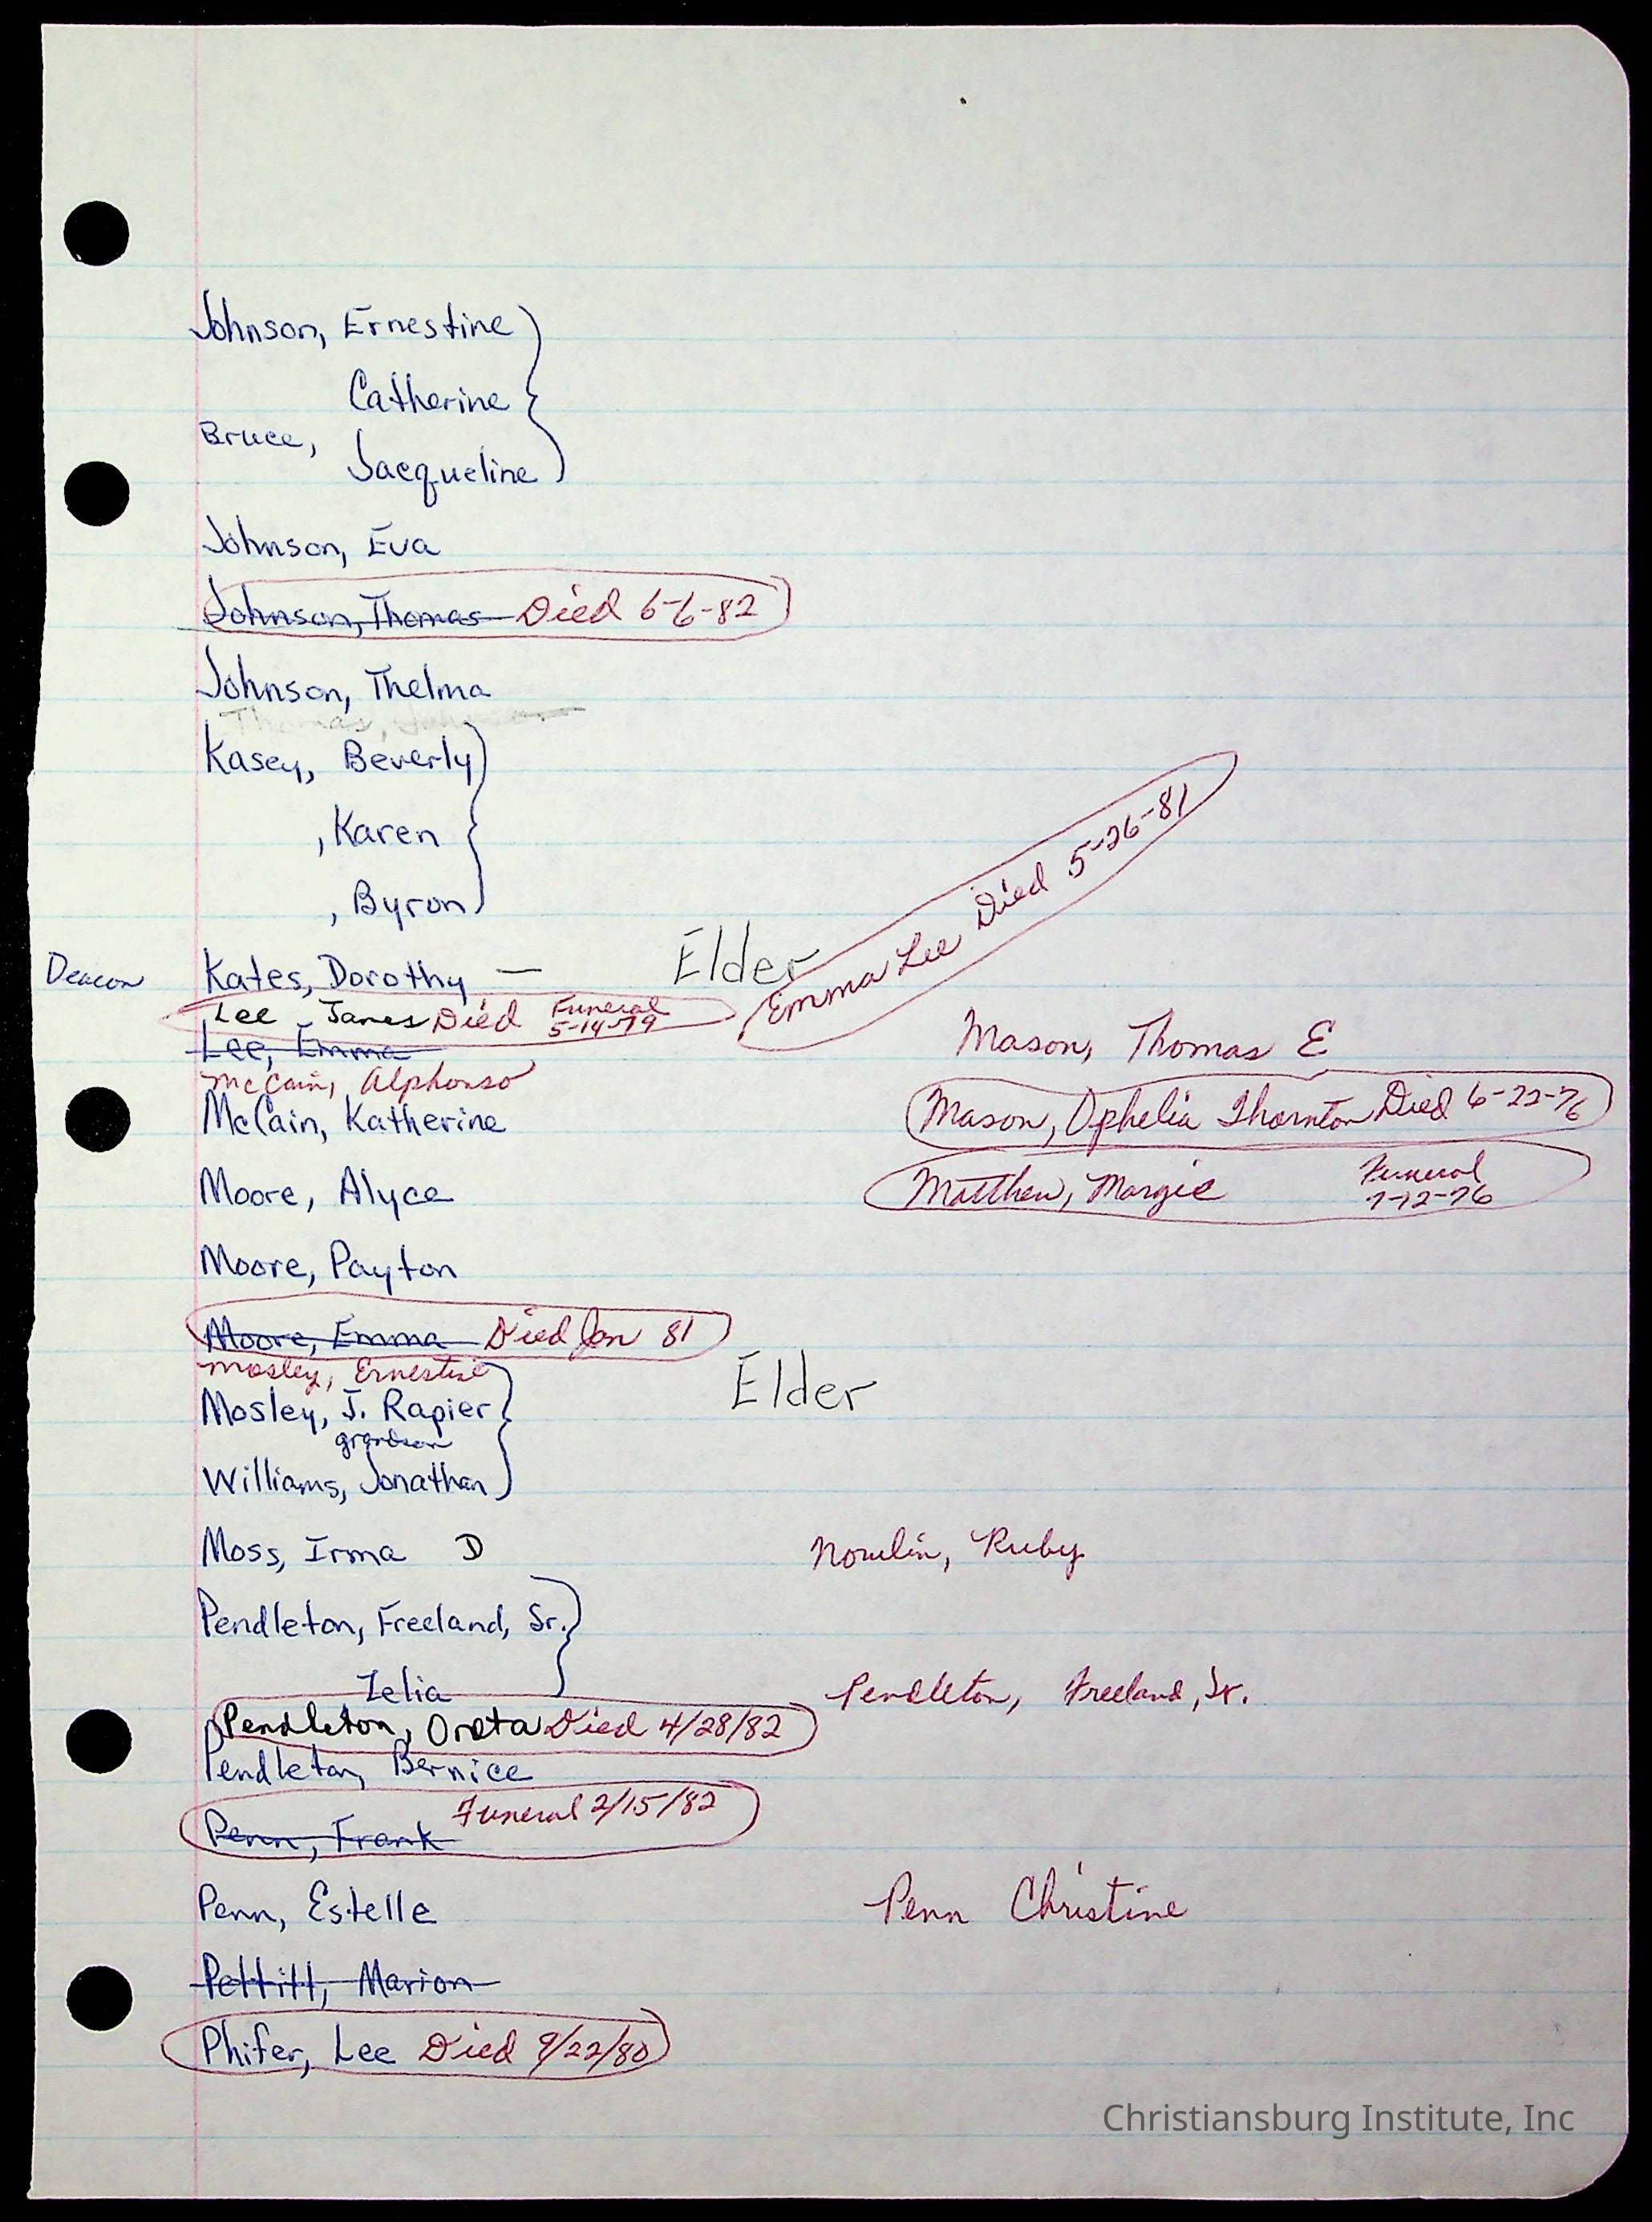 Johnson, Ernestine
Catherine
Bruce,
Jacqueline
Johnson, Eva
Johnson, Thomas Died 6-6-82
Johnson, Thelma
Thomas,
Kasey, Beverly
, Karen
, Byron
Emma Lee Died 5-26-81
Deacon Kates, Dorothy — Elder
Lee, James Died Funeral 5-14-79
Lee, Emma
Mason, Thomas E
McCain, Alphonso
McCain, Katherine
Mason, Ophelia Thornton Died 6-22-76
Moore, Alyce
Matthew, Margie Funeral 7-12-76
Moore, Payton
Moore, Emma Died Jan 81
Mosley, Ernestine
Mosley, J. Rapier Elder
grandson
Williams, Jonathan
Moss, Irma D
Nowlin, Ruby
Pendleton, Freeland, Sr.
Zelia
Pendleton, Freeland, Jr.
Pendleton, Oreta Died 4/28/82
Pendleton, Bernice
Penn, Frank Funeral 2/15/82
Penn, Estelle
Penn Christine
Pettitt, Marion
Phifer, Lee Died 9/22/80
Christiansburg Institute, Inc